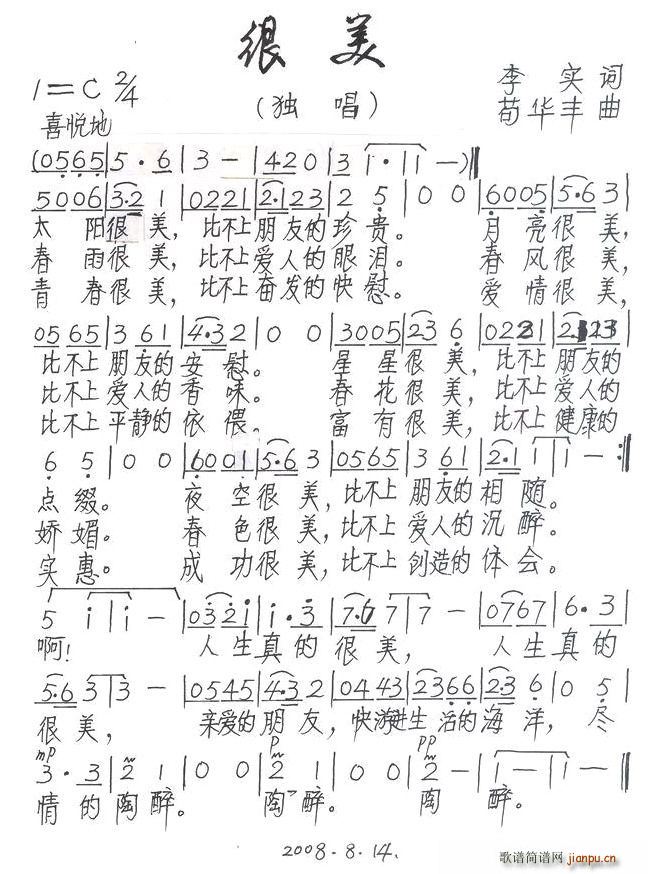 很 美
1=C 2/4
(独 唱)
李 实 词
荀华丰 曲
喜悦地
(0565|5·6|3 -|420|3 1·|1 -)‖
5006|3·2 1|0221|2·123|2 5|0 0|6005|5·63|
太 阳很 美, 比不上朋友的珍 贵。 月 亮很 美,
春 雨很 美, 比不上爱人的眼 泪。 春 风很 美,
青 春很 美, 比不上奋发的快 慰。 爱 情很 美,
0565|3 61|4·32|0 0|3005|23 6|0221|2·123|
比不上 朋友的 安 慰。 星 星很 美, 比不上 朋友的
比不上 爱人的 香 味。 春 花很 美, 比不上 爱人的
比不上 平静的 依 偎。 富 有很 美, 比不上 健康的
6 5|0 0|6001|5·63|0565|3 61|2·1 1|1 -:‖
点 缀。 夜 空很 美,比不上 朋友的相 随。
娇 媚。 春 色很 美,比不上 爱人的沉 醉.
实 惠。 成 功很 美,比不上 创造的体 会。
5 i|i -|03 2i|i·3|7·67|7 -|0767|6·3|
啊! 人生真的 很 美, 人生真的
5·63|3 -|0545|4·32|0443|2366|2·36|0 5|
很 美, 亲爱的 朋 友, 快游进生活的海 洋, 尽
mp p pp
3·3|2 1|0 0|2 1|0 0|2 -|1 -|1 -‖
情 的陶 醉。 陶 醉。 陶 醉。
2008.8.14.
歌谱简谱网
jianpu.cn